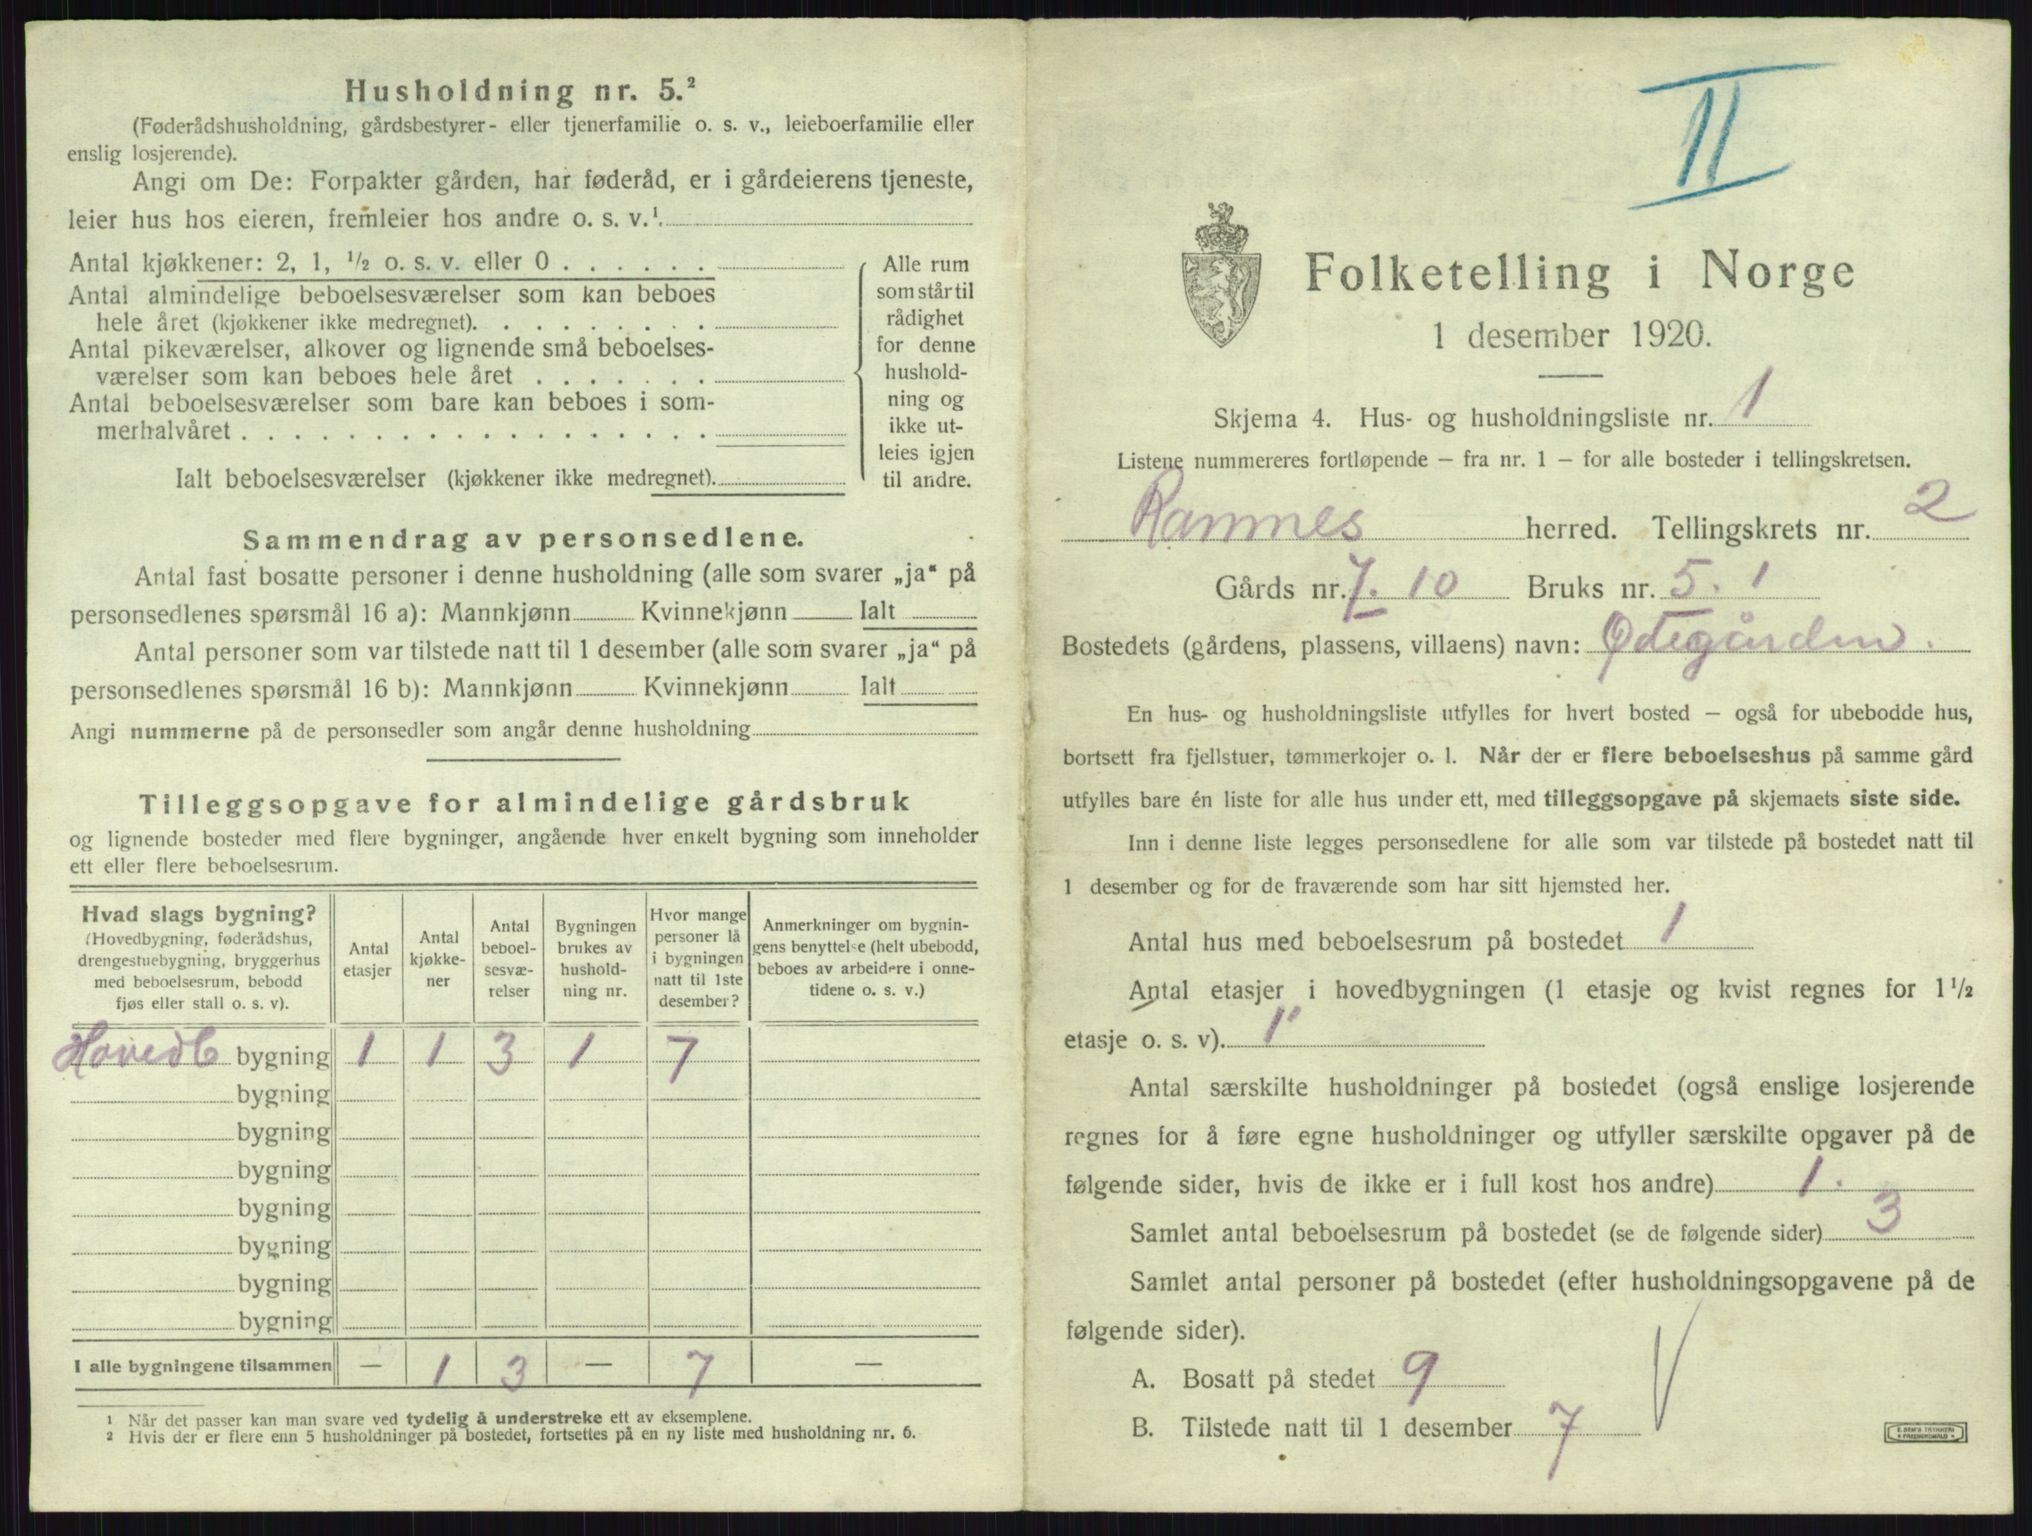 Husholdning nr. 5.²
(Føderådshusholdning, gårdsbestyrer- eller tjenerfamilie o. s. v., leieboerfamilie eller
enslig losjerende).
Angi om De: Forpakter gården, har føderåd, er i gårdeierens tjeneste,
leier hus hos eieren, fremleier hos andre o. s. v.¹.
Antal kjøkkener: 2, 1, ½ o. s. v. eller 0 . . . . . .
Antal almindelige beboelsesværelser som kan beboes
hele året (kjøkkener ikke medregnet). . . . . . . . .
Antal pikeværelser, alkover og lignende små beboelses-
værelser som kan beboes hele året . . . . . . .
Antal beboelsesværelser som bare kan beboes i som-
merhalvåret . . . . . . . . . . . . . . . . . .
Ialt beboelsesværelser (kjøkkener ikke medregnet).
Alle rum
som står til
rådighet
for denne
hushold-
ning og
ikke ut-
leies igjen
til andre.
Sammendrag av personsedlene.
Antal fast bosatte personer i denne husholdning (alle som svarer „ja" på
personsedlenes spørsmål 16 a): Mannkjønn Kvinnekjønn Ialt
Antal personer som var tilstede natt til 1 desember (alle som svarer „ja" på
personsedlenes spørsmål 16 b): Mannkjønn Kvinnekjønn Ialt
Angi nummerne på de personsedler som angår denne husholdning
Tilleggsopgave for almindelige gårdsbruk
og lignende bosteder med flere bygninger, angående hver enkelt bygning som inneholder
ett eller flere beboelsesrum.
Hvad slags bygning?
(Hovedbygning, føderådshus,
drengestuebygning, bryggerhus
med beboelsesrum, bebodd
fjøs eller stall o. s. v).
Antal
etasjer
Antal
kjøkke-
ner
Antal
beboel-
sesvæ-
relser
Bygningen
brukes av
hushold-
ning nr.
Hvor mange
personer lå
i bygningen
natt til 1ste
desember?
Anmerkninger om bygnin-
gens benyttelse (helt ubebodd,
beboes av arbeidere i onne-
tidene o. s. v.)
Hovedb bygning 1 1 3 1 7
bygning
bygning
bygning
bygning
bygning
bygning
bygning
I alle bygningene tilsammen — 1 3 — 7 —
¹ Når det passer kan man svare ved tydelig å understreke ett av eksemplene.
² Hvis der er flere enn 5 husholdninger på bostedet, fortsettes på en ny liste med husholdning nr. 6.
II
Folketelling i Norge
1 desember 1920.
Skjema 4. Hus- og husholdningsliste nr. 1
Listene nummereres fortløpende – fra nr. 1 – for alle bosteder i tellingskretsen.
Ramnes herred. Tellingskrets nr. 2
Gårds nr. 7. 10 Bruks nr. 5. 1
Bostedets (gårdens, plassens, villaens) navn: Ødegården.
En hus- og husholdningsliste utfylles for hvert bosted – også for ubebodde hus,
bortsett fra fjellstuer, tømmerkojer o. l. Når der er flere beboelseshus på samme gård
utfylles bare én liste for alle hus under ett, med tilleggsopgave på skjemaets siste side.
Inn i denne liste legges personsedlene for alle som var tilstede på bostedet natt til
1 desember og for de fraværende som har sitt hjemsted her.
Antal hus med beboelsesrum på bostedet 1
Antal etasjer i hovedbygningen (1 etasje og kvist regnes for 1½
etasje o. s. v). 1
Antal særskilte husholdninger på bostedet (også enslige losjerende
regnes for å føre egne husholdninger og utfyller særskilte opgaver på de
følgende sider, hvis de ikke er i full kost hos andre) 1.
Samlet antal beboelsesrum på bostedet (se de følgende sider) 3
Samlet antal personer på bostedet (efter husholdningsopgavene på de
følgende sider).
A. Bosatt på stedet 9
B. Tilstede natt til 1 desember 7